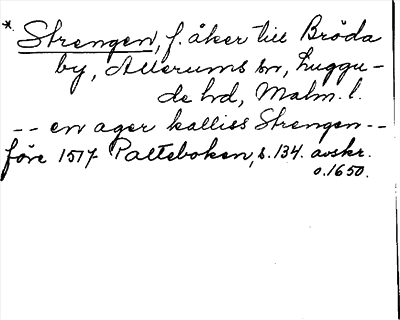 *. Strengen, f. åker till Bröda
by, Allerums sn, Luggu-
de hd, Malm. l.
-- en ager kalliss Strengen --
före 1517 Palteboken, s. 134. avskr.
o. 1650.